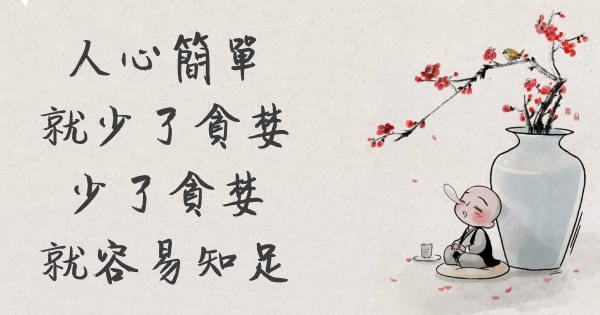 人心簡單
就少了貪婪
少了貪婪
就容易知足